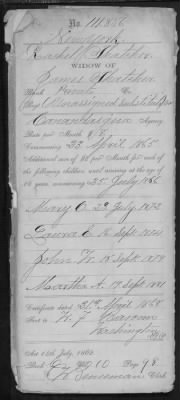 No. 111826
New York
Rachel Thatcher
WIDOW OF
James Thatcher
Rank Private Co.
Reg Unassigned
Canandaigua Agency
Rate per Month $8
Commencing 23 April 1865
Additional sum of $2 per month for each of the
following children until arriving at the age of
16 years, commencing 25 July 1866
Mary O. 22 July 1872
Laura E. Sept. 1874
John W. 15 Sept. 1879
Martha A. 19 Sept. 1881
Certificate dated 21st April 1868
Sent to
Washington
Act 14th July, 1862.
Book Vol. 10 Page 98
Clerk